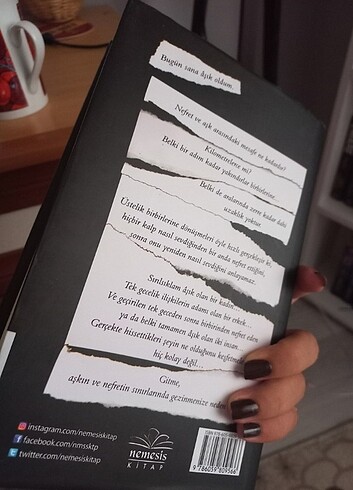 Bugün sana âşık oldum.
Nefret ve aşk arasındaki mesafe ne kadardır?
Kilometrelerce mi?
Belki bir adım kadar yakındırlar birbirlerine.
Belki de aralarında zerre kadar dahi
uzaklık yoktur.
Üstelik birbirlerine dönüşmeleri öyle hızlı gerçekleşir ki,
hiçbir kalp nasıl sevdiğinden bir anda nefret ettiğini,
sonra onu yeniden nasıl sevdiğini anlayamaz.
Sırılsıklam âşık olan bir kadın...
Tek gecelik ilişkilerin adamı olan bir erkek...
Ve geçirilen tek geceden sonra birbirinden nefret eden
ya da belki tamamen âşık olan iki insan.
Gerçekte hissettikleri şeyin ne olduğunu keşfetmek
hiç kolay değil...
Gitme,
aşkın ve nefretin sınırlarında gezinmemize neden
instagram.com/nemesiskitap
facebook.com/nmssktp
twitter.com/nemesiskitap
nemesis
KİTAP
9 786059 809566